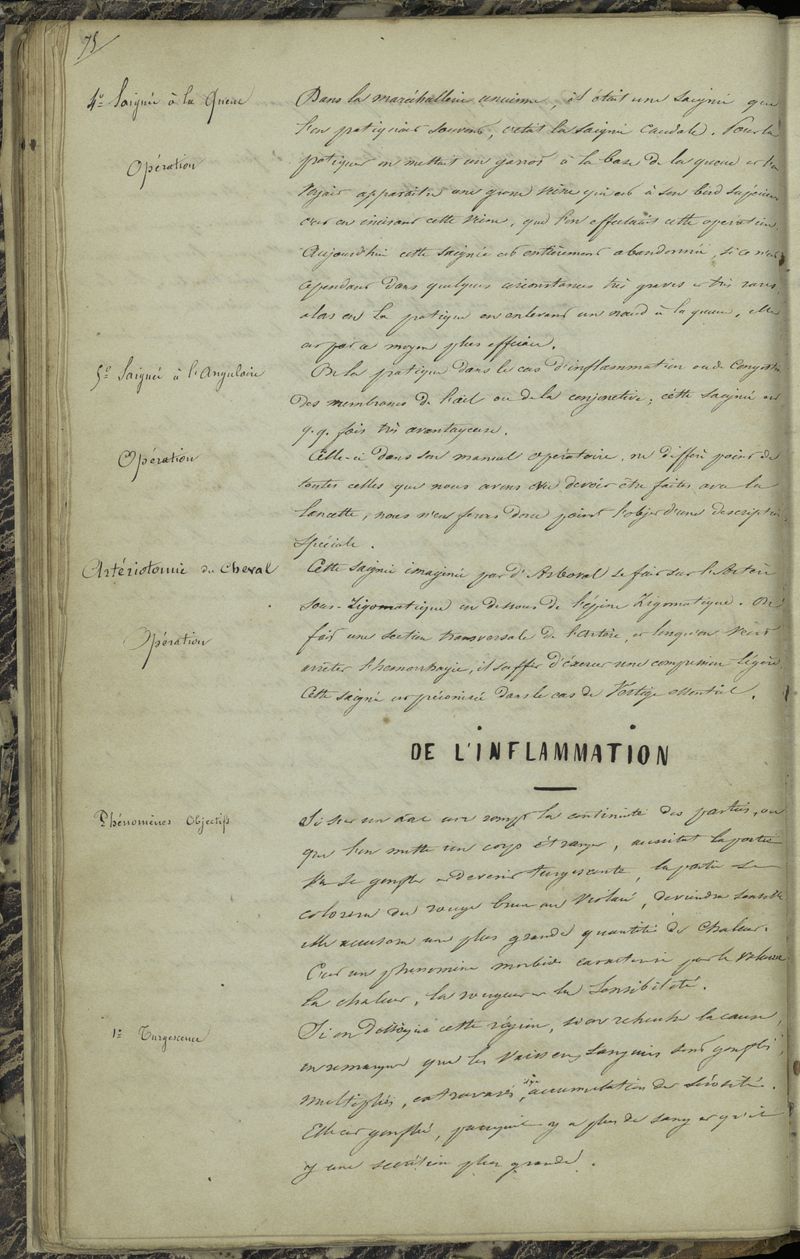 75
4º Saignée à la Queue
Dans la maréchallerie ancienne, il était une saignée que
l'on pratiquait souvent, c'était la saignée caudale. Pour la
Opération
pratiquer on mettait un garrot à la base de la queue et l'on
apparaitre une grosse veine qui est à son bord
c'est en incisant cette veine, que l'on effectuait cette opération.
Aujourd'hui cette saignée est entièrement abandonnée, si ce n'est
cependant dans quelques circonstances très graves et très rares,
alors on la pratique en enlevant un nœud à la queue, elle
est par ce moyen plus efficace.
5º Saignée à l'Angulaire
On la pratique dans le cas d'inflammation ou de
des membranes de l'œil ou de la conjonctive; cette saignée est
q.q. fois très avantageuse.
Opération
Celle-ci dans son manuel opératoire, ne diffère point de
toutes celles que nous avons cru devoir être faites avec la
lancette, nous n'en ferons donc point l'objet d'une description
spéciale.
Artériotomie du Cheval
Cette saignée imaginée par d'Arboval se fait sur l'Artère
sous-Zigomatique en dessous de l'épine Zigomatique. On
Opération
fait une section transversale de l'artère, et lorsqu'on veut
arrêter l'hémorrhagie, il suffit d'exercer une compression légère.
Cette saignée est préconisée dans le cas de Vertige essentiel.
DE L'INFLAMMATION
Phénomènes Objectifs
Si sur un on rompt la continuité des parties, ou
que l'on mette un corps étranger, aussitôt la partie
va se gonfler et devenir turgescente, la partie se
colorera du rouge brun au violacé, deviendra sensible
elle accusera une plus grande quantité de chaleur.
C'est un phénomène morbide caractérisé par le volume
la chaleur, la rougeur et la sensibilité.
1º Turgescence
Si on dissèque cette région, si on recherche la cause,
on remarque que les vaisseaux sanguins sont gonflés,
multipliés, extravasés, accumulation de sérosité.
Elle est gonflée, parcequ'il y a plus de sang et qu'il
y a une secrétion plus grande.